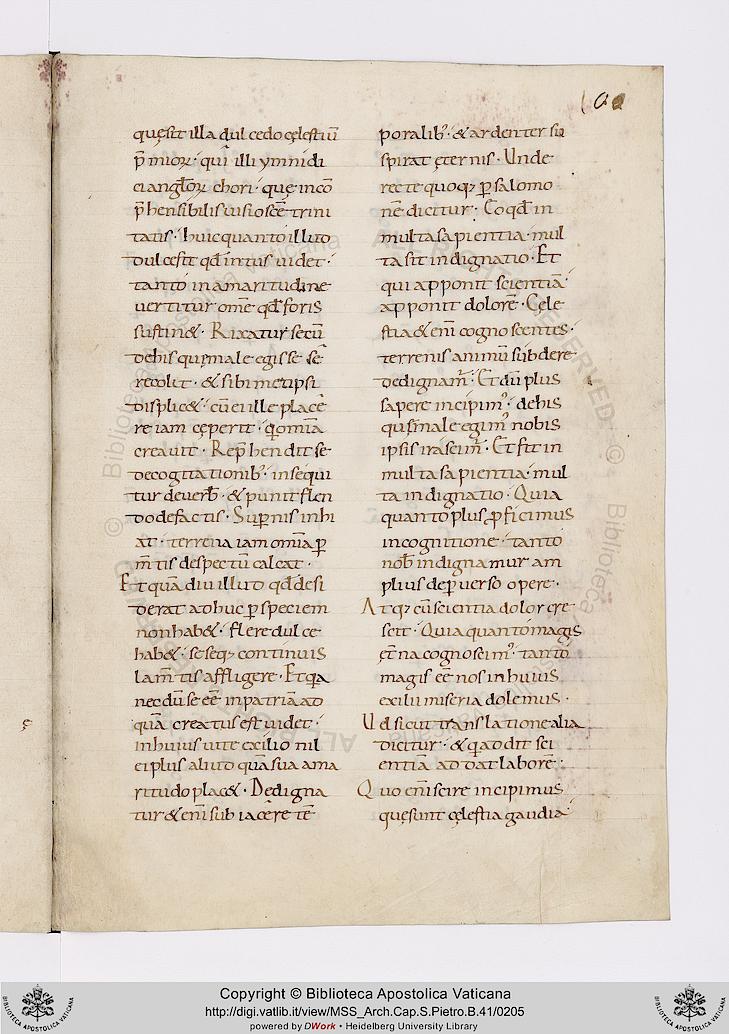 100
quęsit illa dulcedo cęlestiū
p̄mior̄· quı illi ymnidi
ci angl̄or̄ chori· quę inco
p̄hensibilis uisio sc̄ę trini
tatis· huic quanto illud
dulcesit qd̄ intus uidet·
tanto in amaritudine
uertitur om̄e qd̄ foris
sustin&· Rixatur secū
de his quę male egisse se
recolit· & sibimetipsi
displic&· cū ei ille placē
re iam cęperit· qı omīa
creauit· Rep̄hendit se
de cogitationib;· insequi
tur de uerb̄· & punit flen
do de factis· Sup̄nis inhi
at· terrena iam omīa p̄
m̄tis despectū calcat·
Et quādiu illud qd̄ desi
derat adhuc p̄ speciem
non hab&· flere dulce
hab&· seseq; continuis
lam̄tis affligere· Et qa
necdū se eē in patria ad
quā creatus est uidet·
in huius uitę exilio nil
ei plus aliud quā sua ama
ritudo plac&· Dedigna
tur & eni subiacēre tē
poralib;· & ardenter su
spirat ęternis· Unde
recte quoq; p̄ salomo
nē dicitur· Eo qd̄ in
multa sapientia· mul
ta sit indignatio· Et
qui apponit scientiā
apponit dolorē· Cęle
stia & eni cognoscentes·
terrenis animū subdere
dedignam̄· Et dū plus
sapere incipim;· de his
quę male egim; nobis
ipsis irascim̄· Et fit in
multa sapientia· mul
ta indignatio· Quia
quanto plus p̄ficimus
in cognitione· tanto
nob̄ indignamur am
plius de p̄uerso opere·
Atq; cū scientia dolor cre
scit· Quia quanto magis
ęt̄na cognoscim;· tanto
magis eē nos in huius
exilii miseria dolemus·
Ud sicut translatione alia
dicitur· & qı addit sci
entiā addat laborē·
Quo eni scire incipimus
quę sunt cęlestia gaudia
ę
Copyright © Biblioteca Apostolica Vaticana
http://digi.vatlib.it/view/MSS_Arch.Cap.S.Pietro.B.41/0205
powered by DWork • Heidelberg University Library